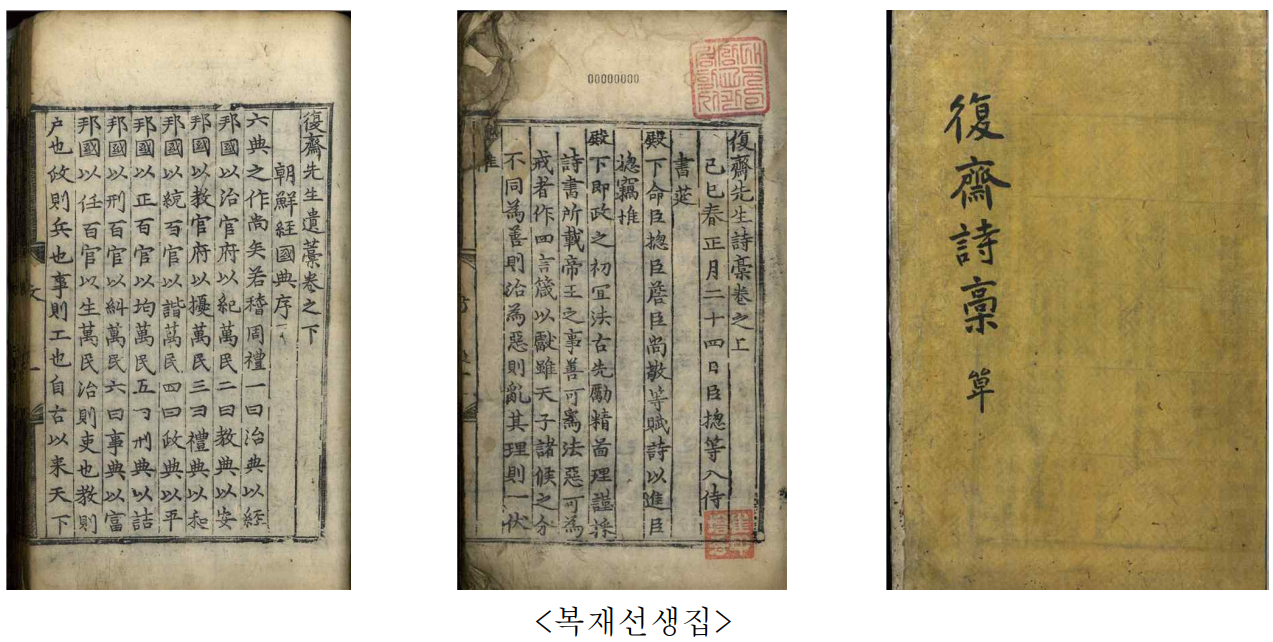 復齋先生遺藁卷之下
朝鮮經國典序
六典之作尚矣若稽周禮一曰治典以經
邦國以治官府以紀萬民二曰教典以安
邦國以教官府以擾萬民三曰禮典以和
邦國以統百官以諧萬民四曰政典以平
邦國以正百官以均萬民五曰刑典以詰
邦國以刑百官以糾萬民六曰事典以富
邦國以任百官以生萬民治則吏也教則
戶也政則兵也事則工也自古以来天下
00000000
復齋先生詩藁卷之上
己巳春正月二十四日臣摠等入侍
書莚
殿下命臣摠臣詹臣尚敬等賦詩以進臣
摠竊惟
殿下即政之初冝法古先勵精啚理謹採
詩書所載帝王之事善可爲法惡可為
戒者作四言箴以獻雖天子諸侯之分
不同為善則治為惡則亂其理則一伏
惟
復齋詩稾 草
<복재선생집>